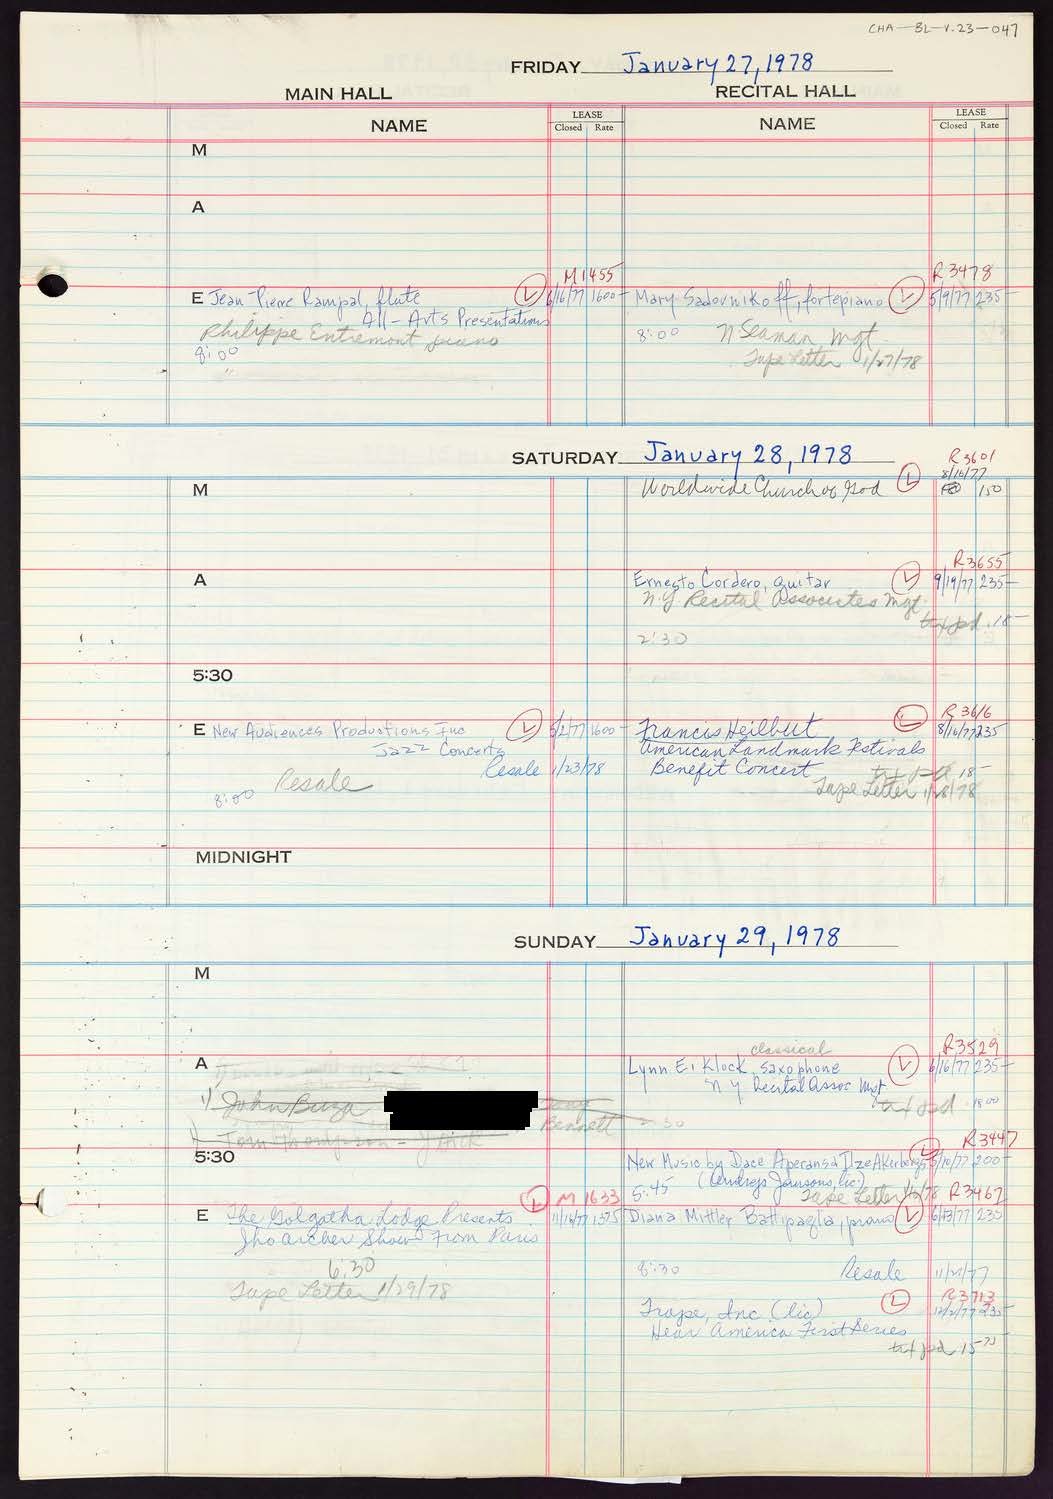 CHA-BL-V.23-047
FRIDAY January 27, 1978
MAIN HALL RECITAL HALL
NAME LEASE Closed Rate NAME LEASE Closed Rate
M
A
M1455 R3478
E Jean-Pierre Rampal, flute L 6/16/77 1600- Mary Sadovnikoff, fortepiano L 5/9/77 235-
All-Arts Presentations
Philippe Entremont piano 8:00 N Seaman Mgt.
8:00 Tape Letter 1/27/78
SATURDAY January 28, 1978 R3601
8/16/77
M Worldwide Church of God L 150
R3655
A Ernesto Cordero, guitar L 9/19/77 235-
N.Y. Recital Associates Mgt.
txt pd. 18-
2:30
5:30
R3616
E New Audiences Productions Inc L 5/2/77 1600- Francis Heilbut L 8/16/77 235
Jazz Concerts American Landmark Festivals
Resale 1/23/78 Benefit Concert txt pd 18-
Resale Tape Letter 1/28/78
8:00
MIDNIGHT
SUNDAY January 29, 1978
M
classical R3529
A Lynn E. Klock, saxophone L 6/16/77 235-
N Y Recital Assoc Mgt
1) John Buza Tony Bennett 2:30 txt pd 18.00
Tom Thompson -
R3447
5:30 New Music by Dace Aperans & Ilze Akerbergs L 5/10/77 200-
5:45 (Andrejs Jansons, lic)
L M 1633 Tape Letter R3467
E The Golgatha Lodge Presents 11/16/77 1375 Diana Mittler Battipaglia, piano L 235
Jho Archer Show From Paris
6:30 8:30 Resale 11/21/77
Tape Letter 1/29/78 L R3713
Trope, Inc (lic) 12/2/77 235-
Hear America First Series
txt pd 15-